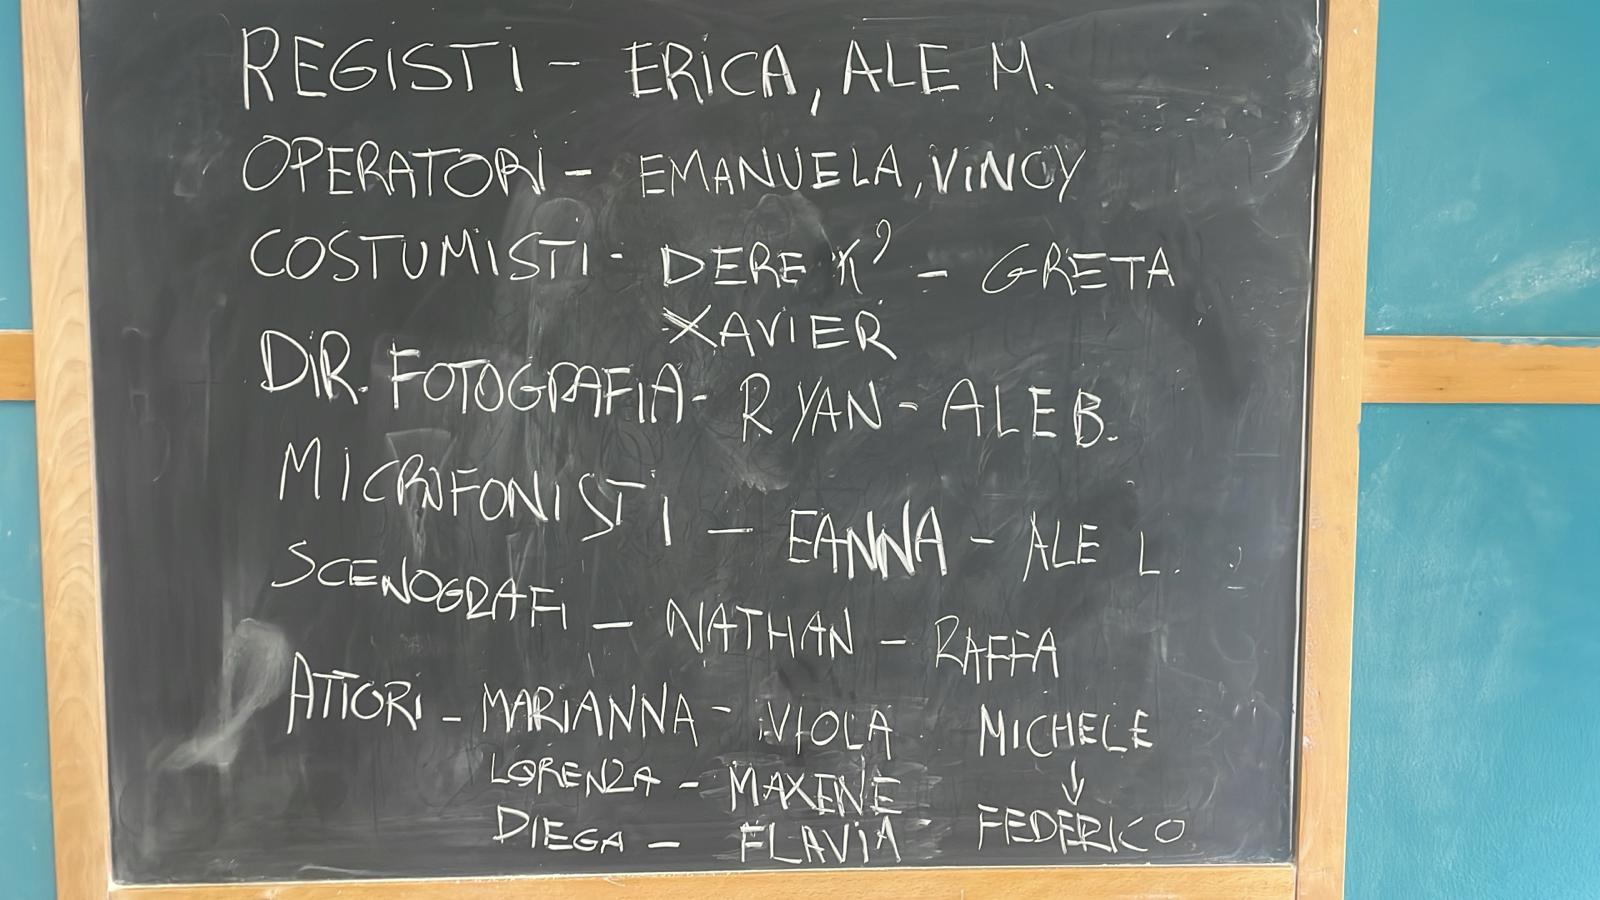 REGISTI - ERICA, ALE M.
OPERATORI - EMANUELA, VINCY
COSTUMISTI - DEREK? - GRETA
XAVIER
DIR. FOTOGRAFIA - RYAN - ALE B.
MICROFONISTI - EANNA - ALE L.
SCENOGRAFI - NATHAN - RAFFA
ATTORI - MARIANNA - VIOLA MICHELE
↓
LORENZA - MAXENE
DIEGA - FLAVIA FEDERICO